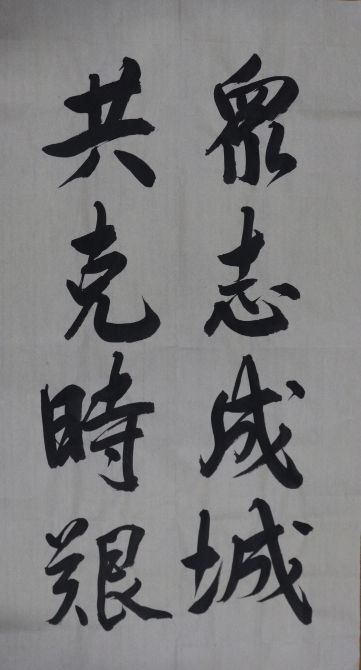 眾志成城
共克時艱